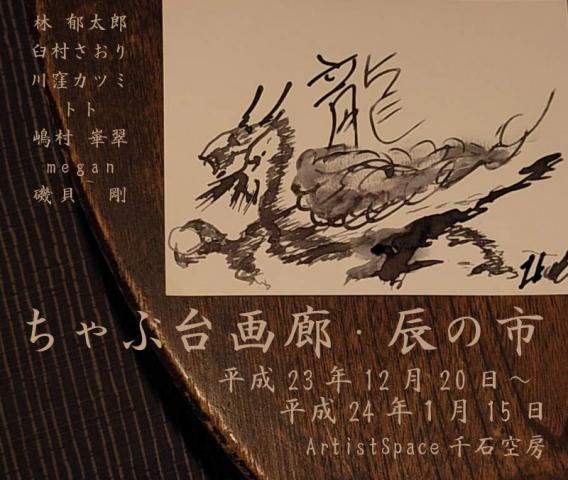 林 郁太郎
臼村さおり
川窪カツミ
トト
嶋村 崋翠
megan
磯貝 剛
龍
ちゃぶ台画廊・辰の市
平成23年12月20日～
平成24年1月15日
ArtistSpace千石空房